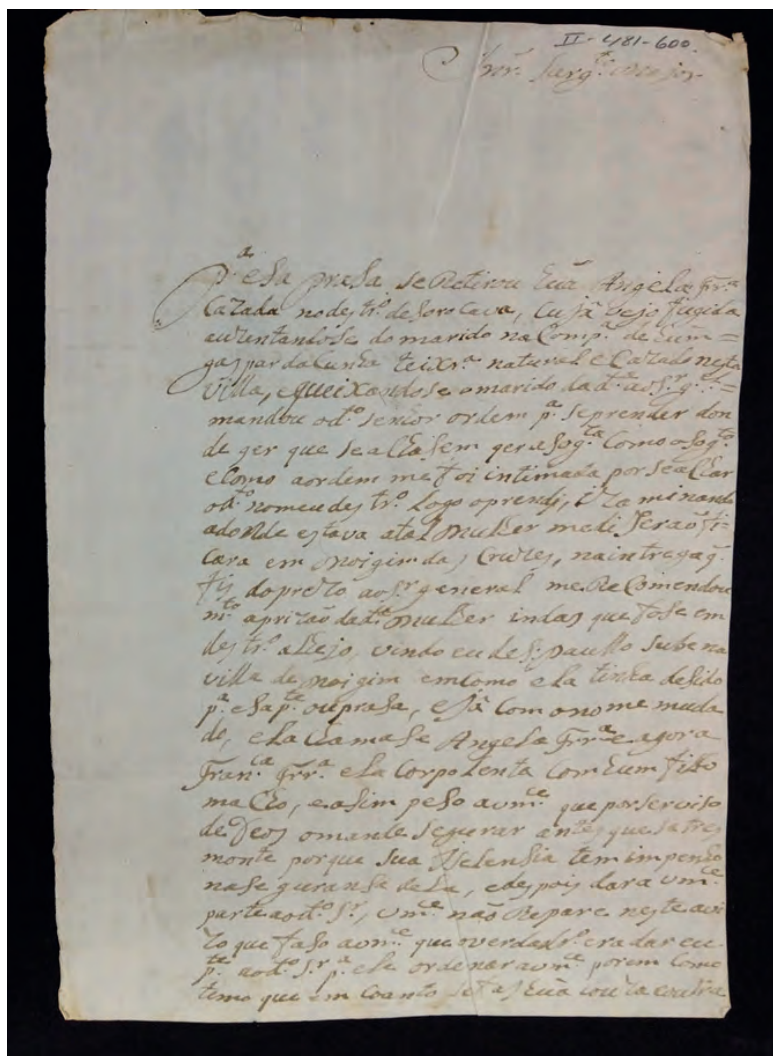 II-481-600.
Snr. Sargto. mayor
Pa. esa prasa se Retirou huã Angela Frra.
Cazada no destro. de Sorocava, cujâ vejo fugida
auzentandose do marido na Compa. de hum=
gaspar da Cunha teixra. natural e Cazado nesta
Villa, e queixandose o marido da da. ao Sr. gl.=
mandou o do. senhor ordem pa. se prender don
de qer que se achasem qer a sogta. Como o sogto.
e Como a ordem me foi intimada por se achar
o do. no meu destro. logo o prendj, Izaminando
adonde estava a tal molher me diseraõ fi-
cara em moigim das Cruzes, na intrega q.
fis do prezo ao Sr. general me Recomendou
mto. a prizaõ da da. molher indas que fose em
destro. alhejo, vindo eu de S. paullo sube na
villa de moigim em como ela tinha desido
pa. esa pte. ou prasa, e jâ Com o nome muda
do, ela chamase Angela Frra. e agora
Franca. Frra. ela Corpolenta Com hum filho
macho, e asim peso a vmce. que por serviso
de Deos o mande segurar antes que se tres
monte porque Sua Iselensia tem impenho
na seguransa dela, e despois dara vmce.
parte ao do. Sr., vmce. não Repare neste avi
zo que faso a vmce. que o verdadro. era dar eu
pte. ao do. Sr. pa. ele ordenar a vmce. porem Como
temo que em Coanto se fas huã couza e outra